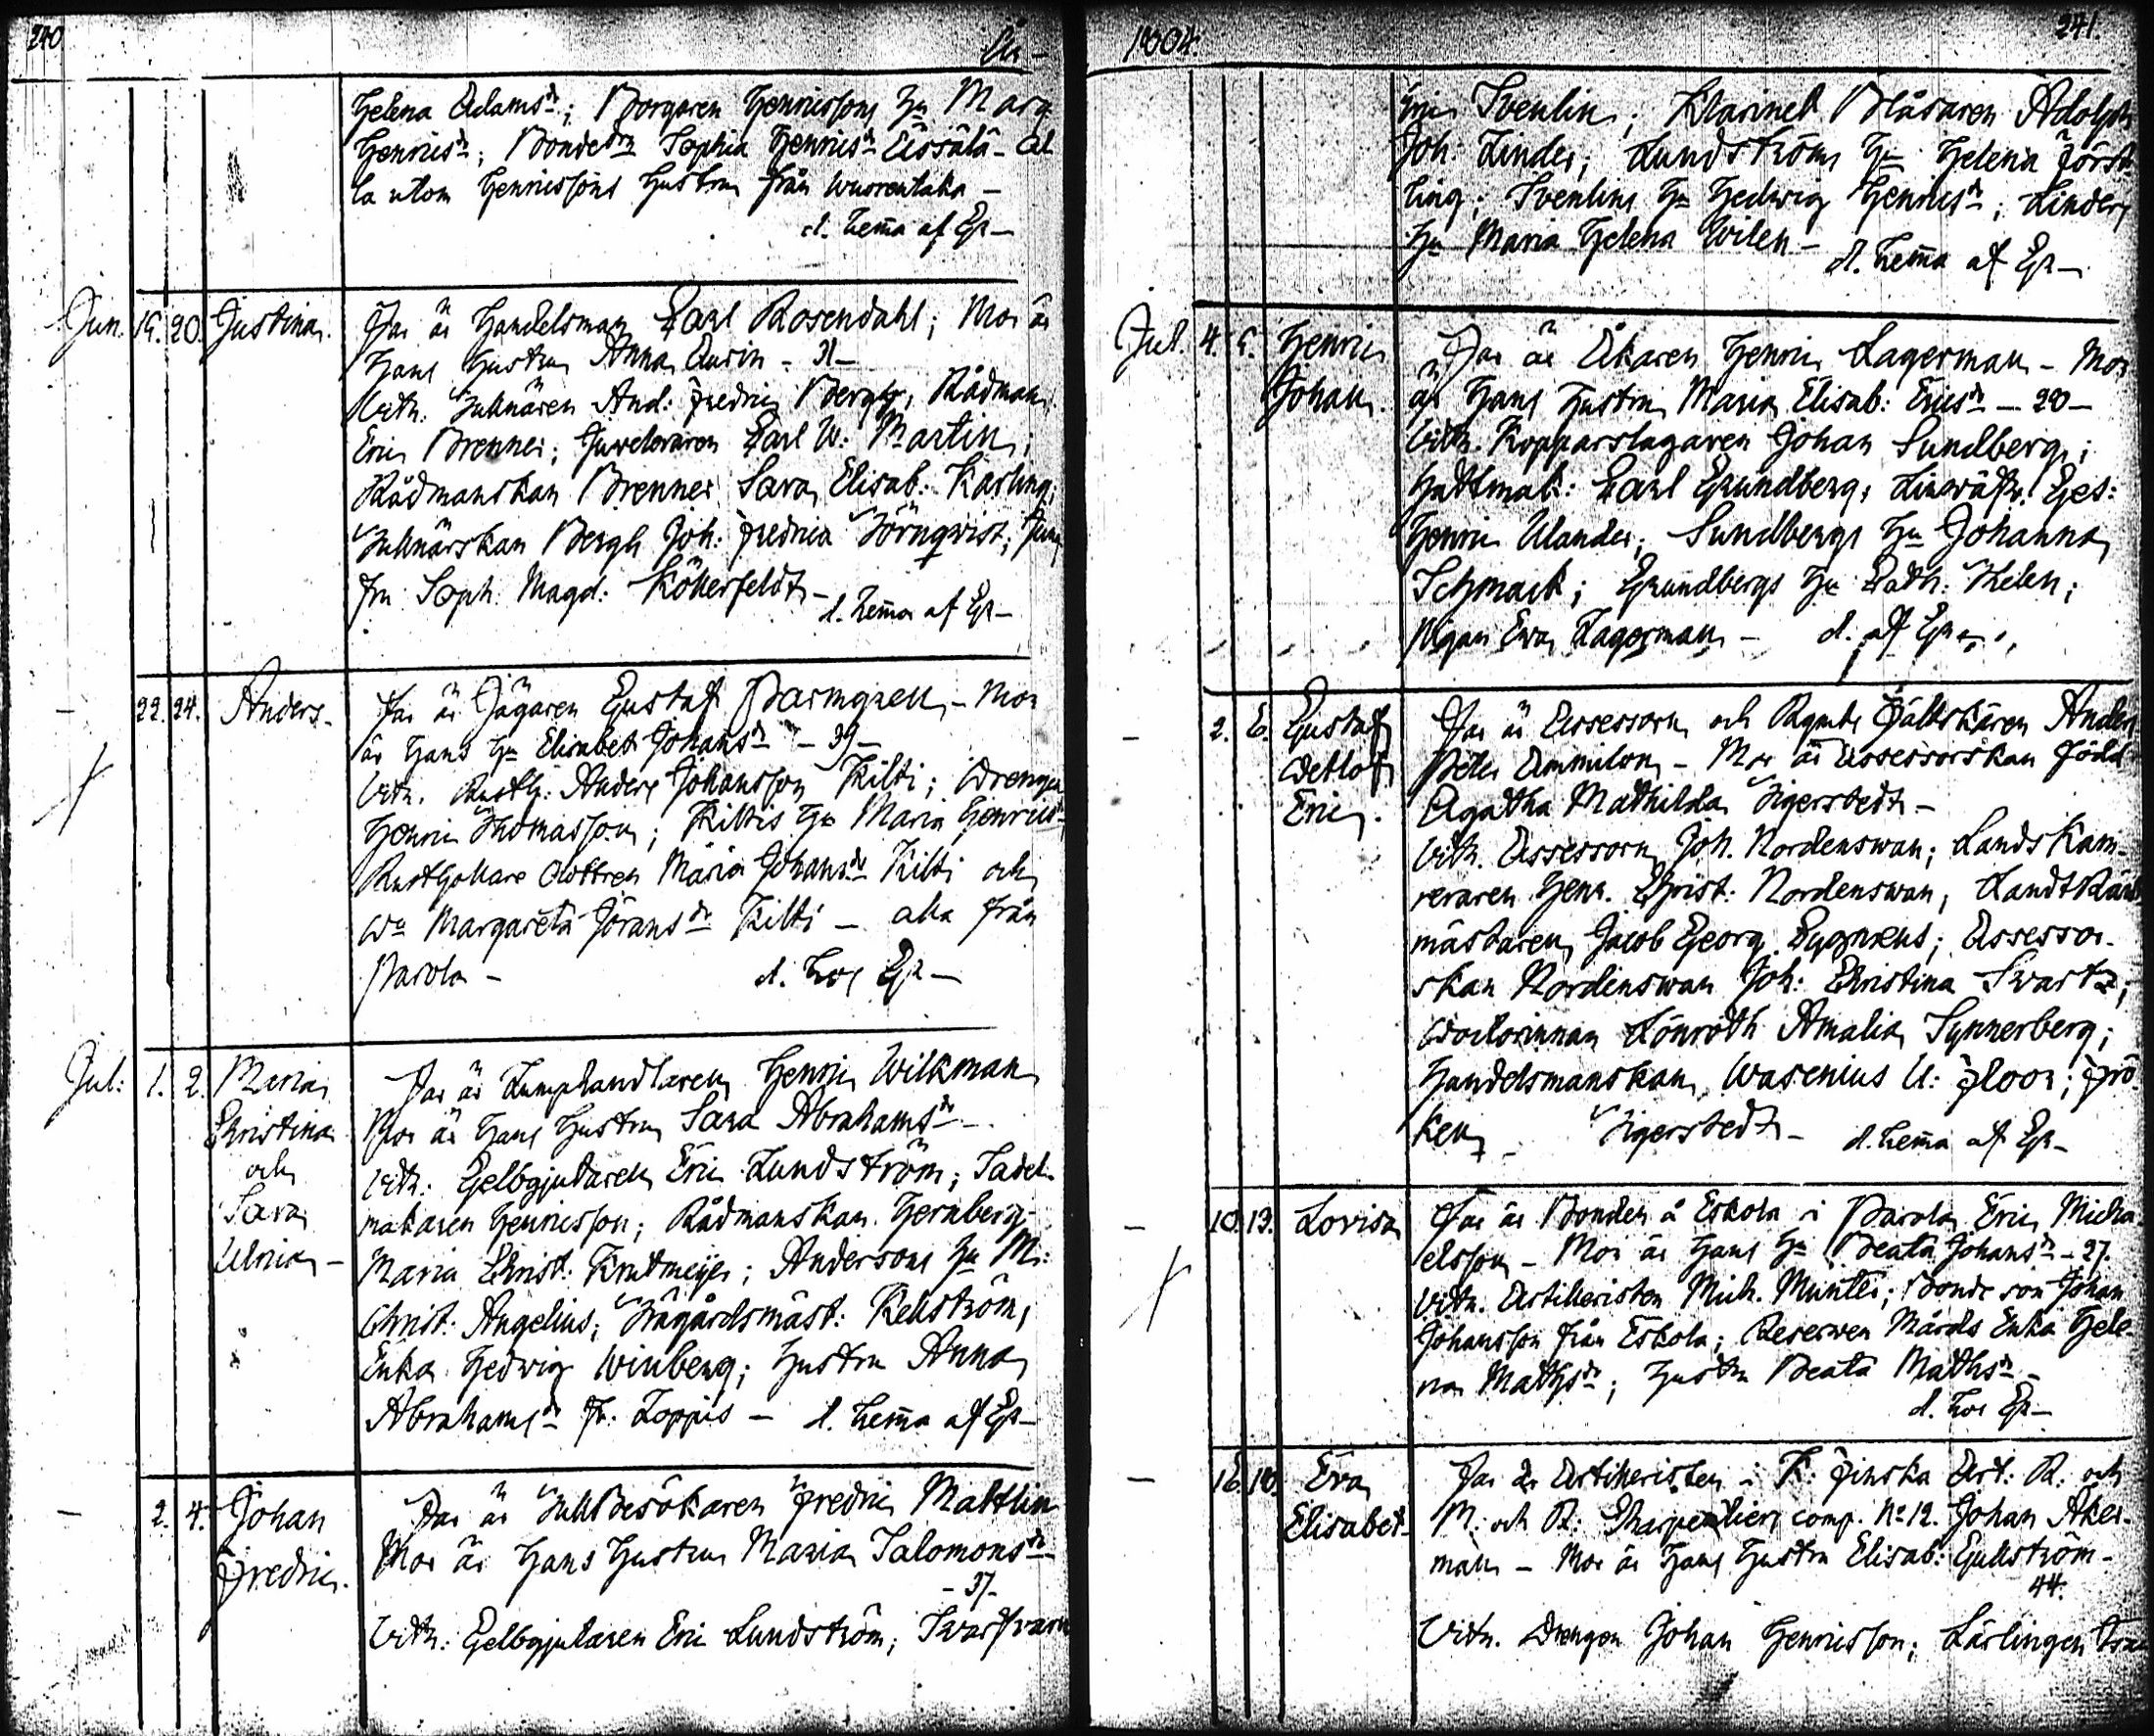 240
År -
Helena Adamsdr; Borgaren Henricssons Hu Marg
Henricsdr; Bondedtn Sophia Henricsdr Äissälä - al
la utom Henricssons hustru från Wuorentaka -
d. hema af Ep -
Jun. 19. 20. Justina.
Far är Handelsman Carl Rosendahl; Mor är
hans hustru Anna Aurin - 31 -
Vitn. Tullnären And: Fredric Bergh, Rådman
Eric Brenner; Juveleraren Carl W: Martin;
Rådmanskan Brenner Sara Elisab: Karling,
Tullnärskan Bergh Joh: Fredrica Törnqwist; Jung
fru Soph. Magd: Köllerfeldt -
d. hema af Ep -
22. 24. Anders -
Far är Jägaren Gustaf Barmgren - Mor
är hans Hu Elisabet Johansdr - 39 -
Vitn. Rusth: Anders Johansson Kilti; Drengen
Henric Thomasson; Kiltis Hu Maria Henricsdr;
Rusthollare dottren Maria Johansdr Kilti och
Da Margareta Jöransdr Kilti - alla från
Parola -
d. hos Ep -
Jul: 1. 2. Maria
Christina
och
Sara
Ulrica -
Far är Lumphandlaren Henric Wilkman
Mor är hans hustru Sara Abrahamsdr -
Vitn: Gelbgjutaren Eric Lundström; Sadel
makaren Henricsson; Rådmanskan Hernberg
Maria Christ: Krutmeijer; Andersons Hu M:
Christ: Angelius; Trägårdsmäst: Rehström,
Enka Hedwig Winberg; hustru Anna
Abrahamsdr fr. Loppis - d. hema af Ep -
2. 4. Johan
Fredric.
Far är TullBesökaren Fredric Malthin
Mor är hans hustru Maria Salomonsdr
- 37 -
Vitn: Gelbgjutaren Eric Lundström; Svarfvaren
1804.
241.
Eric Svenlin; Klarinet Blåsaren Adolph
Joh: Linder; Lundströms Hu Helena Först
ling; Svenlins Hu Hedwig Henricsdr; Linders
Hu Maria Helena Wilen -
d. hema af Ep -
Jul. 4. 5. Henric
Johan.
Far är Åkaren Henric Lagerman - Mor
är hans hustru Maria Elisab: Ericsdr - 20 -
Vitn. Kopparslagaren Johan Sundberg;
Hattmak: Carl Grundberg, Linwäfv. Ges:
Henric Ulander; Sundbergs Hu Johanna
Schmack; Grundbergs Hu Cath: Thelen;
Pigan Ewa Lagerman - d. af Ep
2. 6. Gustaf
Detlof
Eric.
Far är Assessorn och Regmts Fältskären Anders
Peter Ammilon - Mor är Assessorskan född
Agatha Mathilda Tigerstedt -
Vitn. Assessorn Joh. Nordenswan; Lands Kam-
reraren Henr. Christ: Nordenswan, Landtränt
mästaren Jacob Georg Cygnæus; Assessor-
skan Nordenswan Joh: Christina Svartz;
Doctorinnan Lönroth Amalia Synnerberg;
Handelsmanskan Wasenius U: Floor; Frö
ken Tigerstedt - d. hema af Ep -
10. 13. Lovisa
Far är Bonden å Eskola i Parola Eric Micha
elsson - Mor är hans Hu Beata Johansdr - 27.
Vitn. Artilleristen Mich. Munter; Bonde son Johan
Johansson från Eskola; Reserven Mårds Enka Hele
na Mathsdr; hustru Beata Mathsdr -
d. hos Ep -
16. 18. Eva
Elisabet -
Far är Artilleristen i K: Finska Art: R. och
M: och R: Charpentiers comp. No 12. Johan Åker-
man - Mor är hans hustru Elisab: Gullström -
44.
Vitn. Drengen Johan Henricsson; Lärlingen